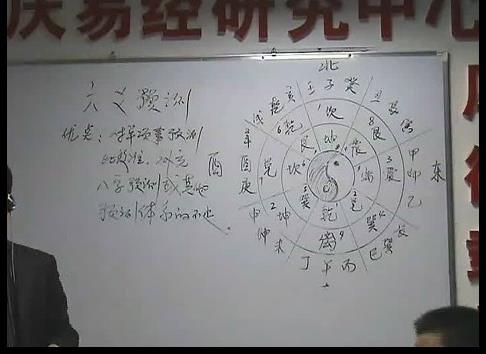 庆易经研究中心
六爻预测
优点：对单项事预测
比较准，补充
八字预测或其他
预测体系的不足
北
壬子癸
丑艮寅
甲卯乙
东
辰巽巳
丙午丁
未坤申
庚酉辛
酉
戌乾亥
1坎
8艮
3震
4巽
9离
2坤
7兑
6乾
坤
震
离
兑
乾
巽
坎
艮